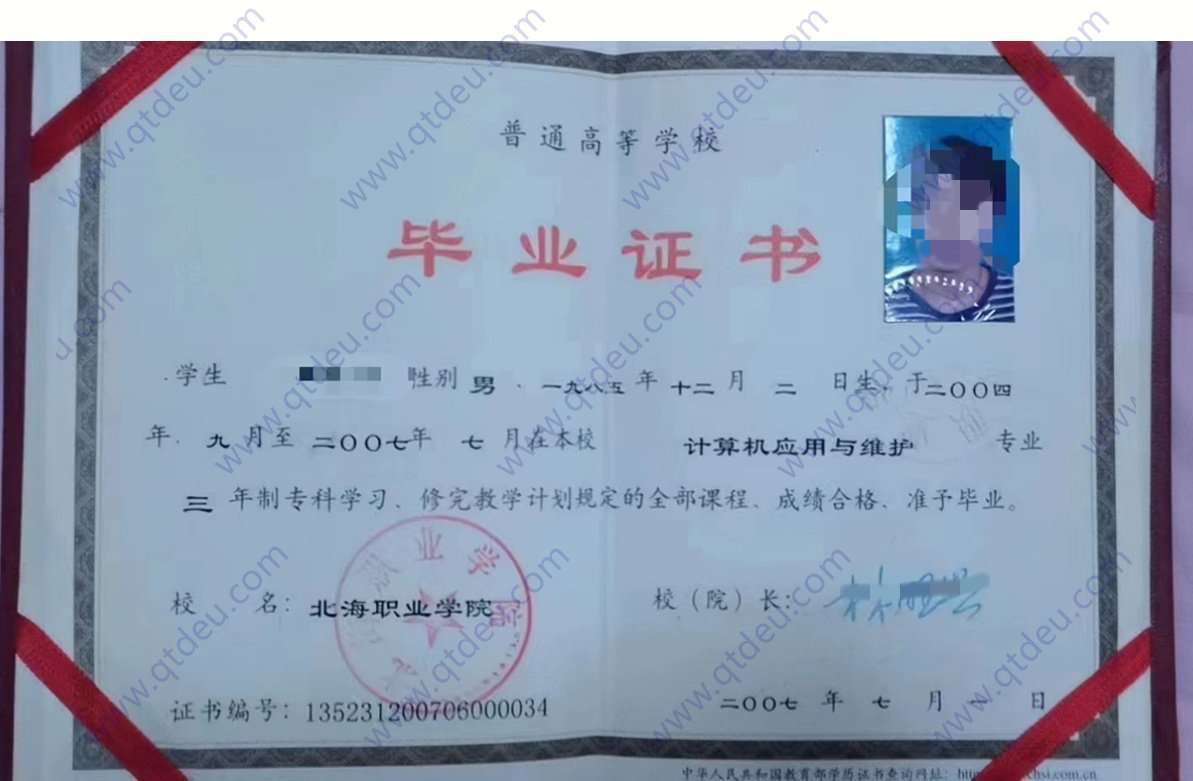 普通高等学校
毕业证书
学生 性别 男 、一九八五 年 十二 月 二 日生，于二〇〇四
年、九 月至 二〇〇七年 七 月在本校 计算机应用与维护 专业
三 年制专科学习、修完教学计划规定的全部课程、成绩合格、准予毕业。
校 名：北海职业学院
校（院）长：
证书编号：135231200706000034
二〇〇七 年 七 月 一 日
中华人民共和国教育部学历证书查询网址：
www.qtdeu.com